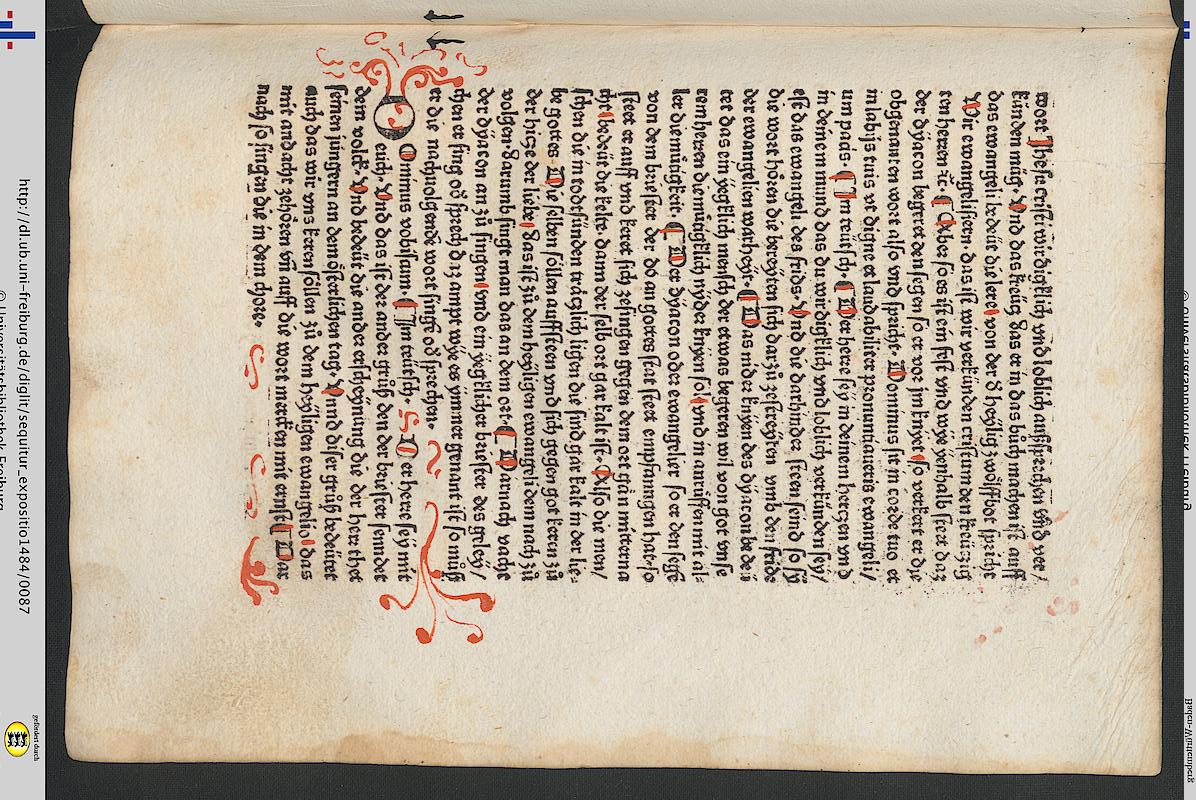 wort Jhesu cristi wirdigklich vnd loblich außsprechen vnd ver/
künden müg. Vnd das kreütz das er in das bůch machen ist auff
das ewangeli bedeüt die lere von der der heylig zwölffbot spricht
Wir ewangelisiern. das ist. wir verkünden cristum den kreützig
ten herren ⁊c. Aber so es ist ein fest vnd wye yenhalb steet daz
der dyacon begeret den segen so er vor im knyet so verkert er die
obgenanten wort also vnd spricht. Dominus sit in corde tuo et
in labijs tuis vt digne et laudabiliter pronuntiaueris ewangeli/
um pacis. Im teütsch. Der herre sey in deinem herczen vnd
in deinem mund das du wirdigklich vnd loblich verkünden sey/
est das ewangeli des frids. Vnd die dorhinder steen seind so sy
die wort hören die bereyten sich darzů zestreyten vmb den fride
der ewangelien warheyt. Das nider knyen des dyacon bedeü
tet das ein yegklich mensch der etwas begeren wil von got vnse
rem herren diemütigklich nyder knyen sol vnd in anrůffen mit al⸗
ler diemütigkeit. Der dyacon oder ewangelier so er den sege
von dem briester der do an gottes stat steet empfangen hat so
steet er auff vnd keret sich zesingen gegen dem ort gen mitterna
cht bedeüt die kelte. dann der selb ort gar kalt ist. Also die men/
schen die in todsünden träclich ligen die sind gar kalt in der lie⸗
be gottes. Die selben söllen auffsteen vnd sich gegen got keren zů
der hitze der liebe das ist zů dem heyligen ewangeli dem nach zů
volgen darumb singt man das an dem ort. Darnach vacht
der dyacon an zů singen vnd ein yegklicher briester des gleych
chen er sing oď sprech dz ampt wye es ymmer genant ist so můß
er die nachuolgende wort singe oď sprechen.
Dominus vobiscum. Im teütsch. Der herre sey mit
euch. Vnd das ist der ander grůß den der briester sendet
dem volck. Vnd bedeüt die ander erscheynung die der herr thet
seinen jungern an dem österlichen tag. Vnnd diser grůß bedeütet
auch das wir vns keren söllen zů dem heyligen ewangelio das
mit andacht zehören vñ auff die wort mercken mit ernst. Dar
nach so singen die in dem chore.
http://dl.ub.uni-freiburg.de/diglit/sequitur_expositio1484/0087
© Universitätsbibliothek Freiburg
gefördert durch